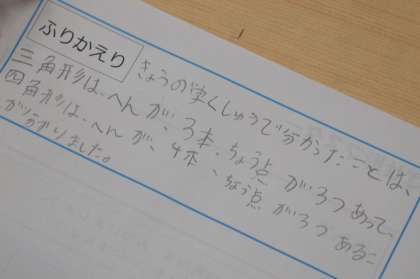 ふりかえり
きょうの学くしゅうで分かったことは、
三角形は、へんが、3本、ちょう点が3つあって、
四角形は、へんが、4本、ちょう点が3つあるこ
が分かりました。